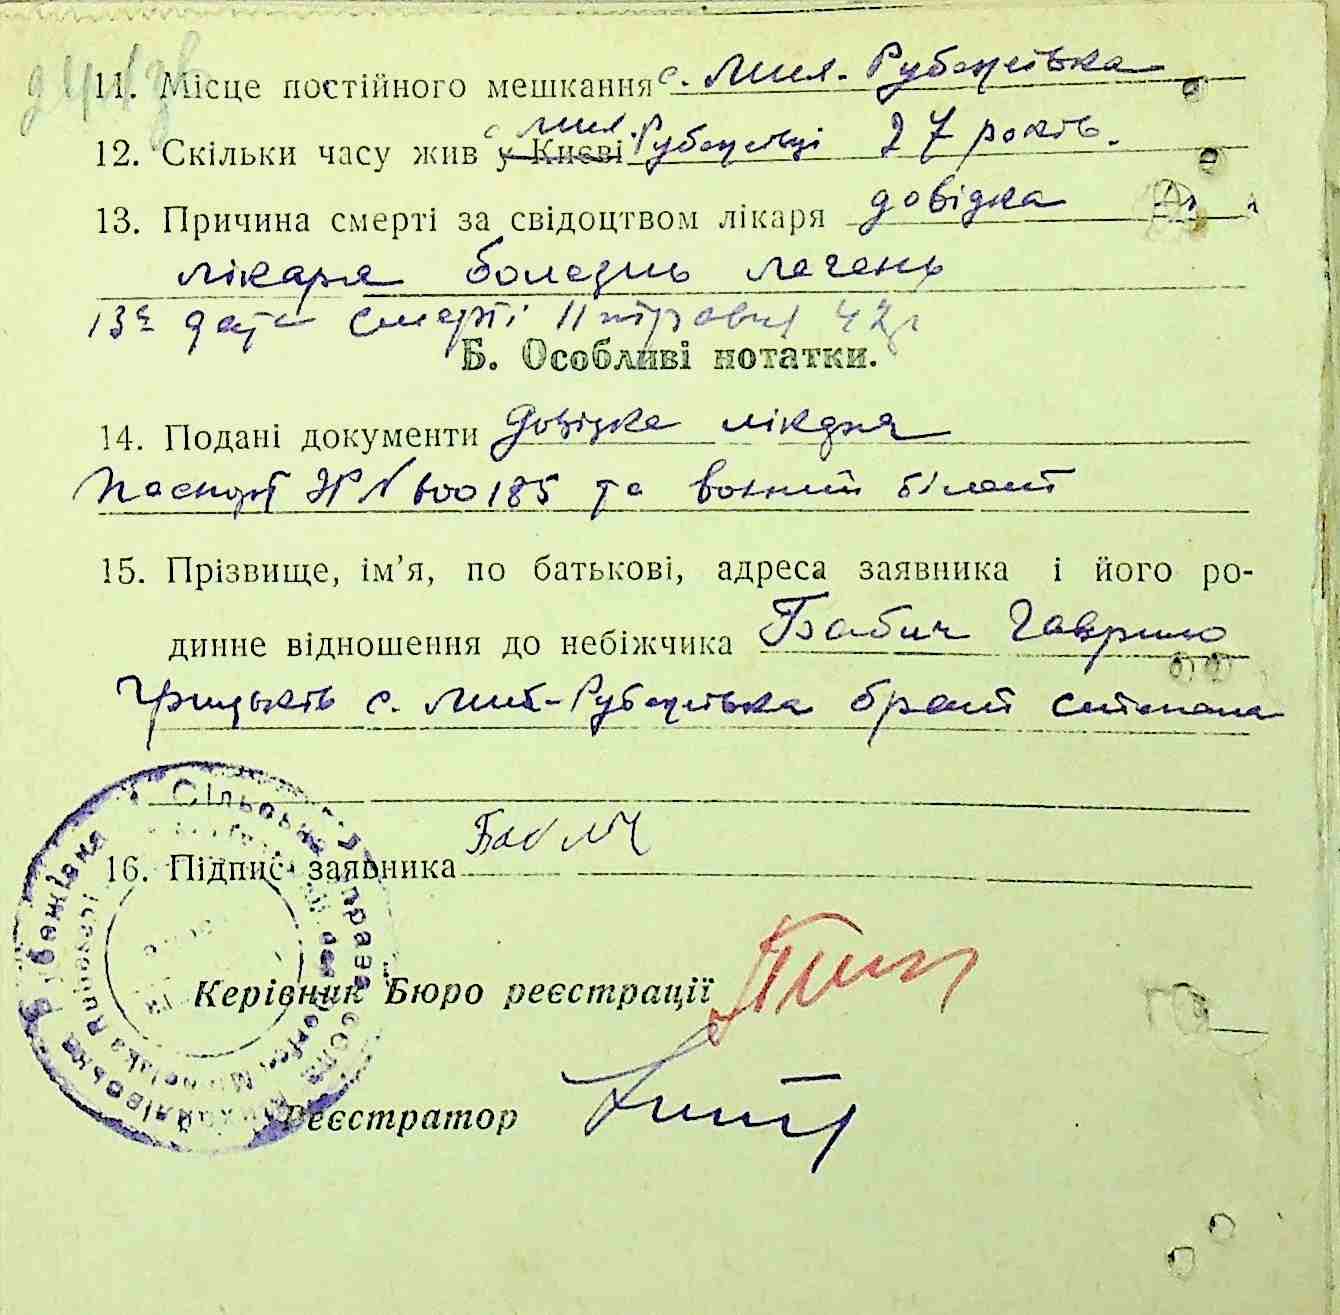 11. Місце постійного мешкання с. Мих. Рубежівка
12. Скільки часу жив у Києві с Мих. Рубежівці 27 років.
13. Причина смерті за свідоцтвом лікаря довідка
лікаря болезнь печень
13а дата смерті 11 травня 42 г
Б. Особливі нотатки.
14. Подані документи Довідка лікаря
Паспорт № 600185 та воєнний білет
15. Прізвище, ім’я, по батькові, адреса заявника і його ро-
динне відношення до небіжчика Бабич Гаврило
Грицьків с. Мих-Рубежівка брат степана
Сільська Управа
16. Підпис заявника Бабич
Керівник Бюро реєстрації
Реєстратор